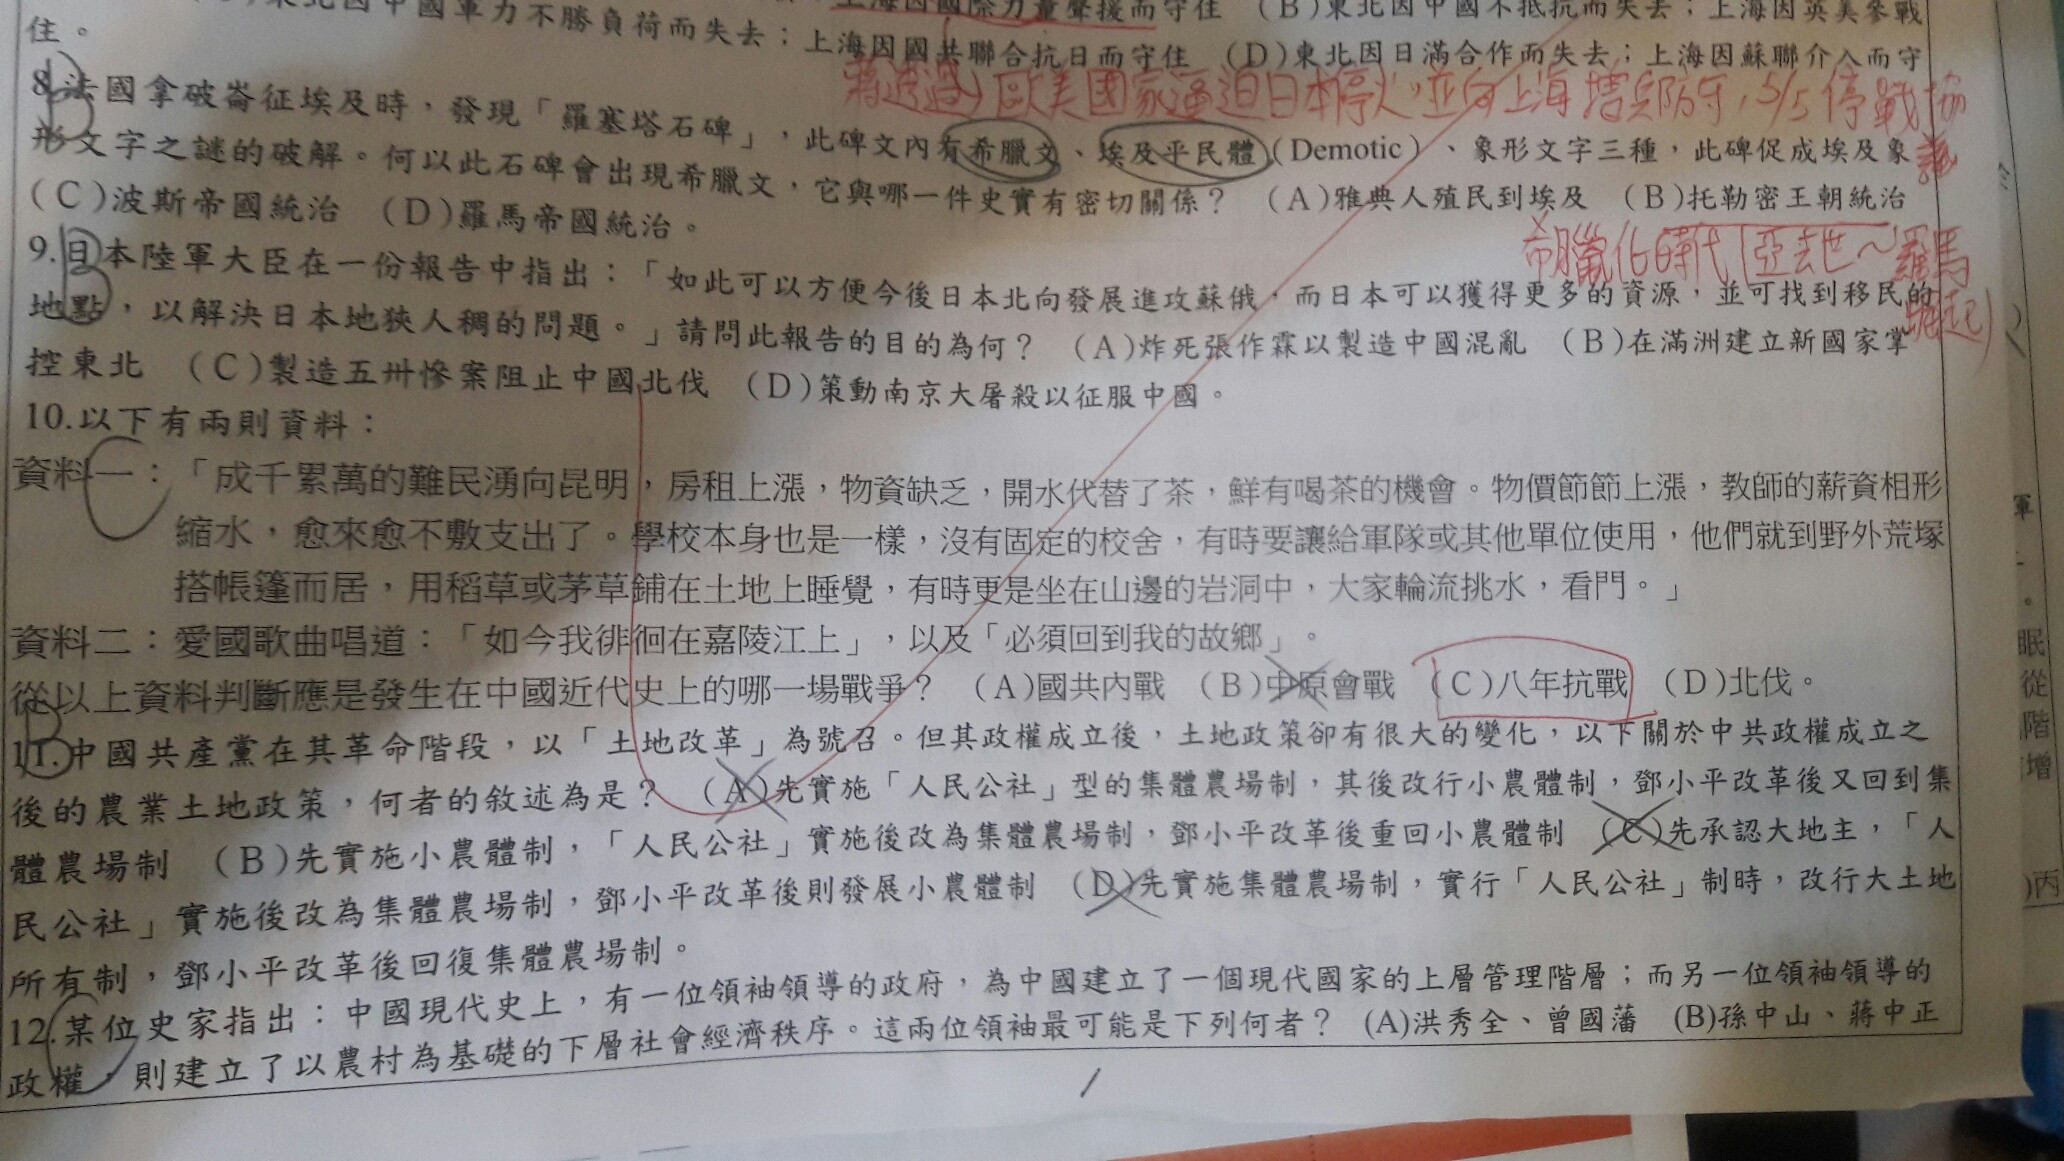 東北因中國軍力不勝負荷而失去；上海因國共聯合抗日而守住 (D)東北因日滿合作而失去；上海因蘇聯介入而守
上海因國際力量聲援而守住 (B)東北因中國不抵抗而失去；上海因英美參戰
住。
蔣透過歐美國家逼迫日本停火，並向上海增兵防守，5/5停戰協議
8.法國拿破崙征埃及時，發現「羅塞塔石碑」，此碑文內有希臘文、埃及平民體(Demotic)、象形文字三種，此碑促成埃及象
形文字之謎的破解。何以此石碑會出現希臘文，它與哪一件史實有密切關係？ (A)雅典人殖民到埃及 (B)托勒密王朝統治
(C)波斯帝國統治 (D)羅馬帝國統治。
B
希臘化時代(亞去世～羅馬崛起)
9.日本陸軍大臣在一份報告中指出：「如此可以方便今後日本北向發展進攻蘇俄，而日本可以獲得更多的資源，並可找到移民的
地點，以解決日本地狹人稠的問題。」請問此報告的目的為何？ (A)炸死張作霖以製造中國混亂 (B)在滿洲建立新國家掌
控東北 (C)製造五卅慘案阻止中國北伐 (D)策動南京大屠殺以征服中國。
B
10.以下有兩則資料：
C
資料一：「成千累萬的難民湧向昆明，房租上漲，物資缺乏，開水代替了茶，鮮有喝茶的機會。物價節節上漲，教師的薪資相形
縮水，愈來愈不敷支出了。學校本身也是一樣，沒有固定的校舍，有時要讓給軍隊或其他單位使用，他們就到野外荒塚
搭帳篷而居，用稻草或茅草鋪在土地上睡覺，有時更是坐在山邊的岩洞中，大家輪流挑水，看門。」
資料二：愛國歌曲唱道：「如今我徘徊在嘉陵江上」，以及「必須回到我的故鄉」。
從以上資料判斷應是發生在中國近代史上的哪一場戰爭？ (A)國共內戰 (B)中原會戰 (C)八年抗戰 (D)北伐。
B
11.中國共產黨在其革命階段，以「土地改革」為號召。但其政權成立後，土地政策卻有很大的變化，以下關於中共政權成立之
後的農業土地政策，何者的敘述為是？ (A)先實施「人民公社」型的集體農場制，其後改行小農體制，鄧小平改革後又回到集
體農場制 (B)先實施小農體制，「人民公社」實施後改為集體農場制，鄧小平改革後重回小農體制 (C)先承認大地主，「人
民公社」實施後改為集體農場制，鄧小平改革後則發展小農體制 (D)先實施集體農場制，實行「人民公社」制時，改行大土地
所有制，鄧小平改革後回復集體農場制。
C
12.某位史家指出：中國現代史上，有一位領袖領導的政府，為中國建立了一個現代國家的上層管理階層；而另一位領袖領導的
政權，則建立了以農村為基礎的下層社會經濟秩序。這兩位領袖最可能是下列何者？ (A)洪秀全、曾國藩 (B)孫中山、蔣中正
軍
眠
從
階
增
)丙